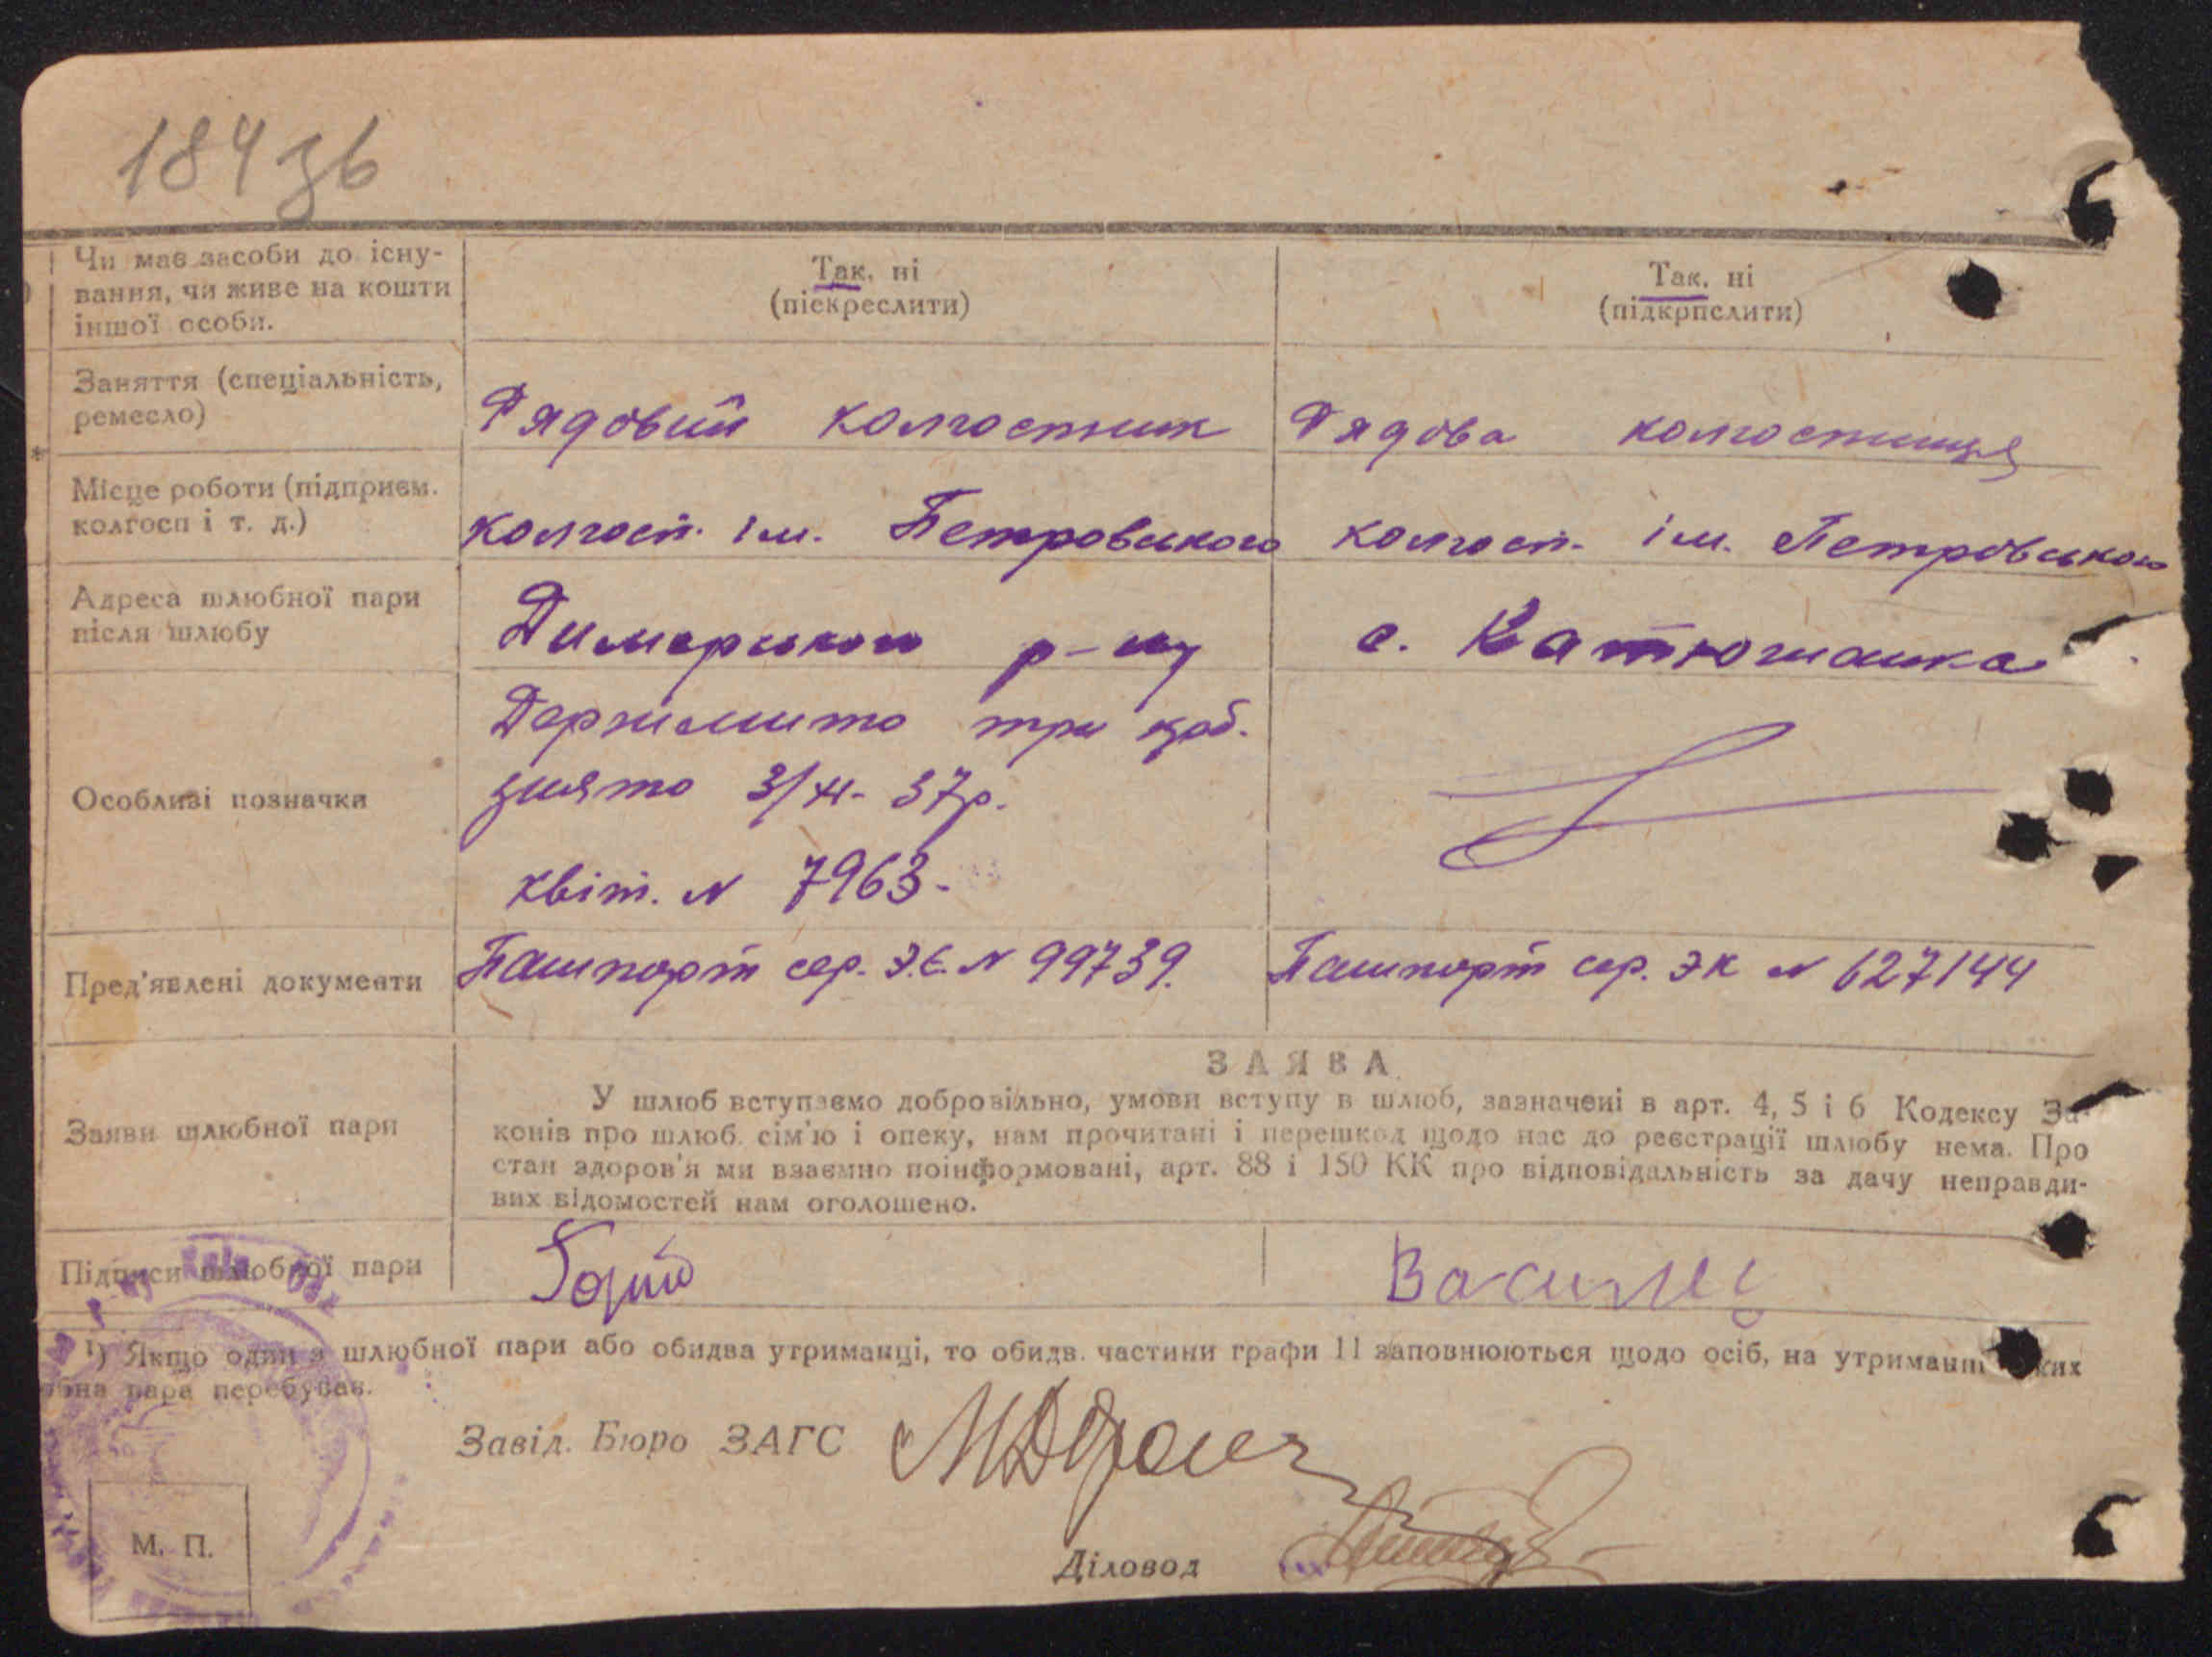 184 зв
Чи має засоби до існу-
вання, чи живе на кошти
іншої особи.
Так, ні
(піекреслити)
Так, ні
(підкрпслити)
Заняття (спеціальність,
ремесло)
Рядовий колгоспник
Рядова колгоспниця
Місце роботи (підприєм.
колгосп і т. д.)
колгосп. ім. Петровського
колгосп. ім. Петровського
Адреса шлюбної пари
після шлюбу
Димерського р-ну
с. Катюжанка
Особливі позначки
Держмито три крб.
знято 3/XI- 37р.
квіт. N 7963-
Пред'явлені документи
Пашпорт сер. Э.Е. N 99739.
Пашпорт сер. ЭК N 627144
Заяви шлюбної пари
ЗАЯВА
У шлюб вступаємо добровільно, умови вступу в шлюб, зазначені в арт. 4, 5 і 6 Кодексу За-
конів про шлюб. сім'ю і опеку, нам прочитані і перешкод щодо нас до реєстрації шлюбу нема. Про
стан здоров'я ми взаємно поінформовані, арт. 88 і 150 КК про відповідальність за дачу неправди-
вих відомостей нам оголошено.
Підписи шлюбної пари
¹) Якщо один з шлюбної пари або обидва утриманці, то обидв. частини графи 11 заповнюються щодо осіб, на утриманні яких
пара перебуває.
Завід. Бюро ЗАГС
Діловод
М. П.